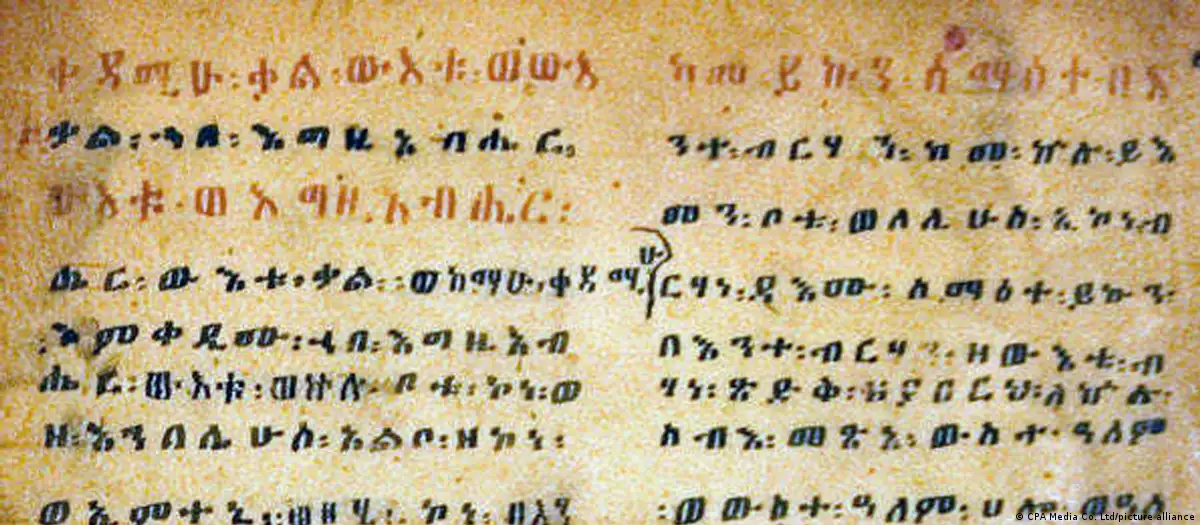 ቀዳሚሁ፡ቃል፡ውእቱ፡ወውእ
ቱ፡ቃል፡ኀበ፡እግዚአብሔር፡
ውእቱ፡ወእግዚአብሔር፡
ሔር፡ውእቱ፡ቃል፡፡ወከማሁ፡ቀዳሚ
እምቀዲሙ፡ኀበ፡እግዚአብ
ሔር፡ውእቱ፡ወኵሉ፡ቦቱ፡ኮነ፡ወ
ዘ፡እንበሌሁሰ፡አልቦ፡ዘኮነ፡
ኮነ፡በእን
ከመ፡ይኩን፡ሰማዕተ፡በእ
ንተ፡ብርሃን፡ከመ፡ኵሉ፡ይእ
መን፡ቦቱ፡ወለሊሁሰ፡ኢኮነ፡ብ
ሁ
ርሃነ፡ዳእሙ፡ሰማዕተ፡ይኩን፡
በእንተ፡ብርሃን፡ዘውእቱ፡ብ
ሃነ፡ጽድቅ፡ዘያበርህ፡ለኵሉ፡
ሰብእ፡መጽአ፡ውስተ፡ዓለም
፡ወውስተ፡ዓለም፡ሀሎ፡ወዓለ
© CPA Media Co. Ltd/picture alliance